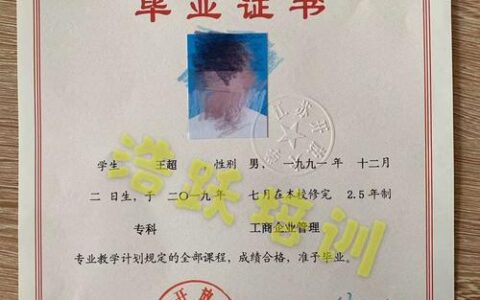 毕业证书
学生 王超 性别 男、一九九一年 十二月
二 日生，于 二〇一九年 七月在本校修完 2.5 年制
专科 工商企业管理
专业教学计划规定的全部课程，成绩合格，准予毕业。
浩跃培训